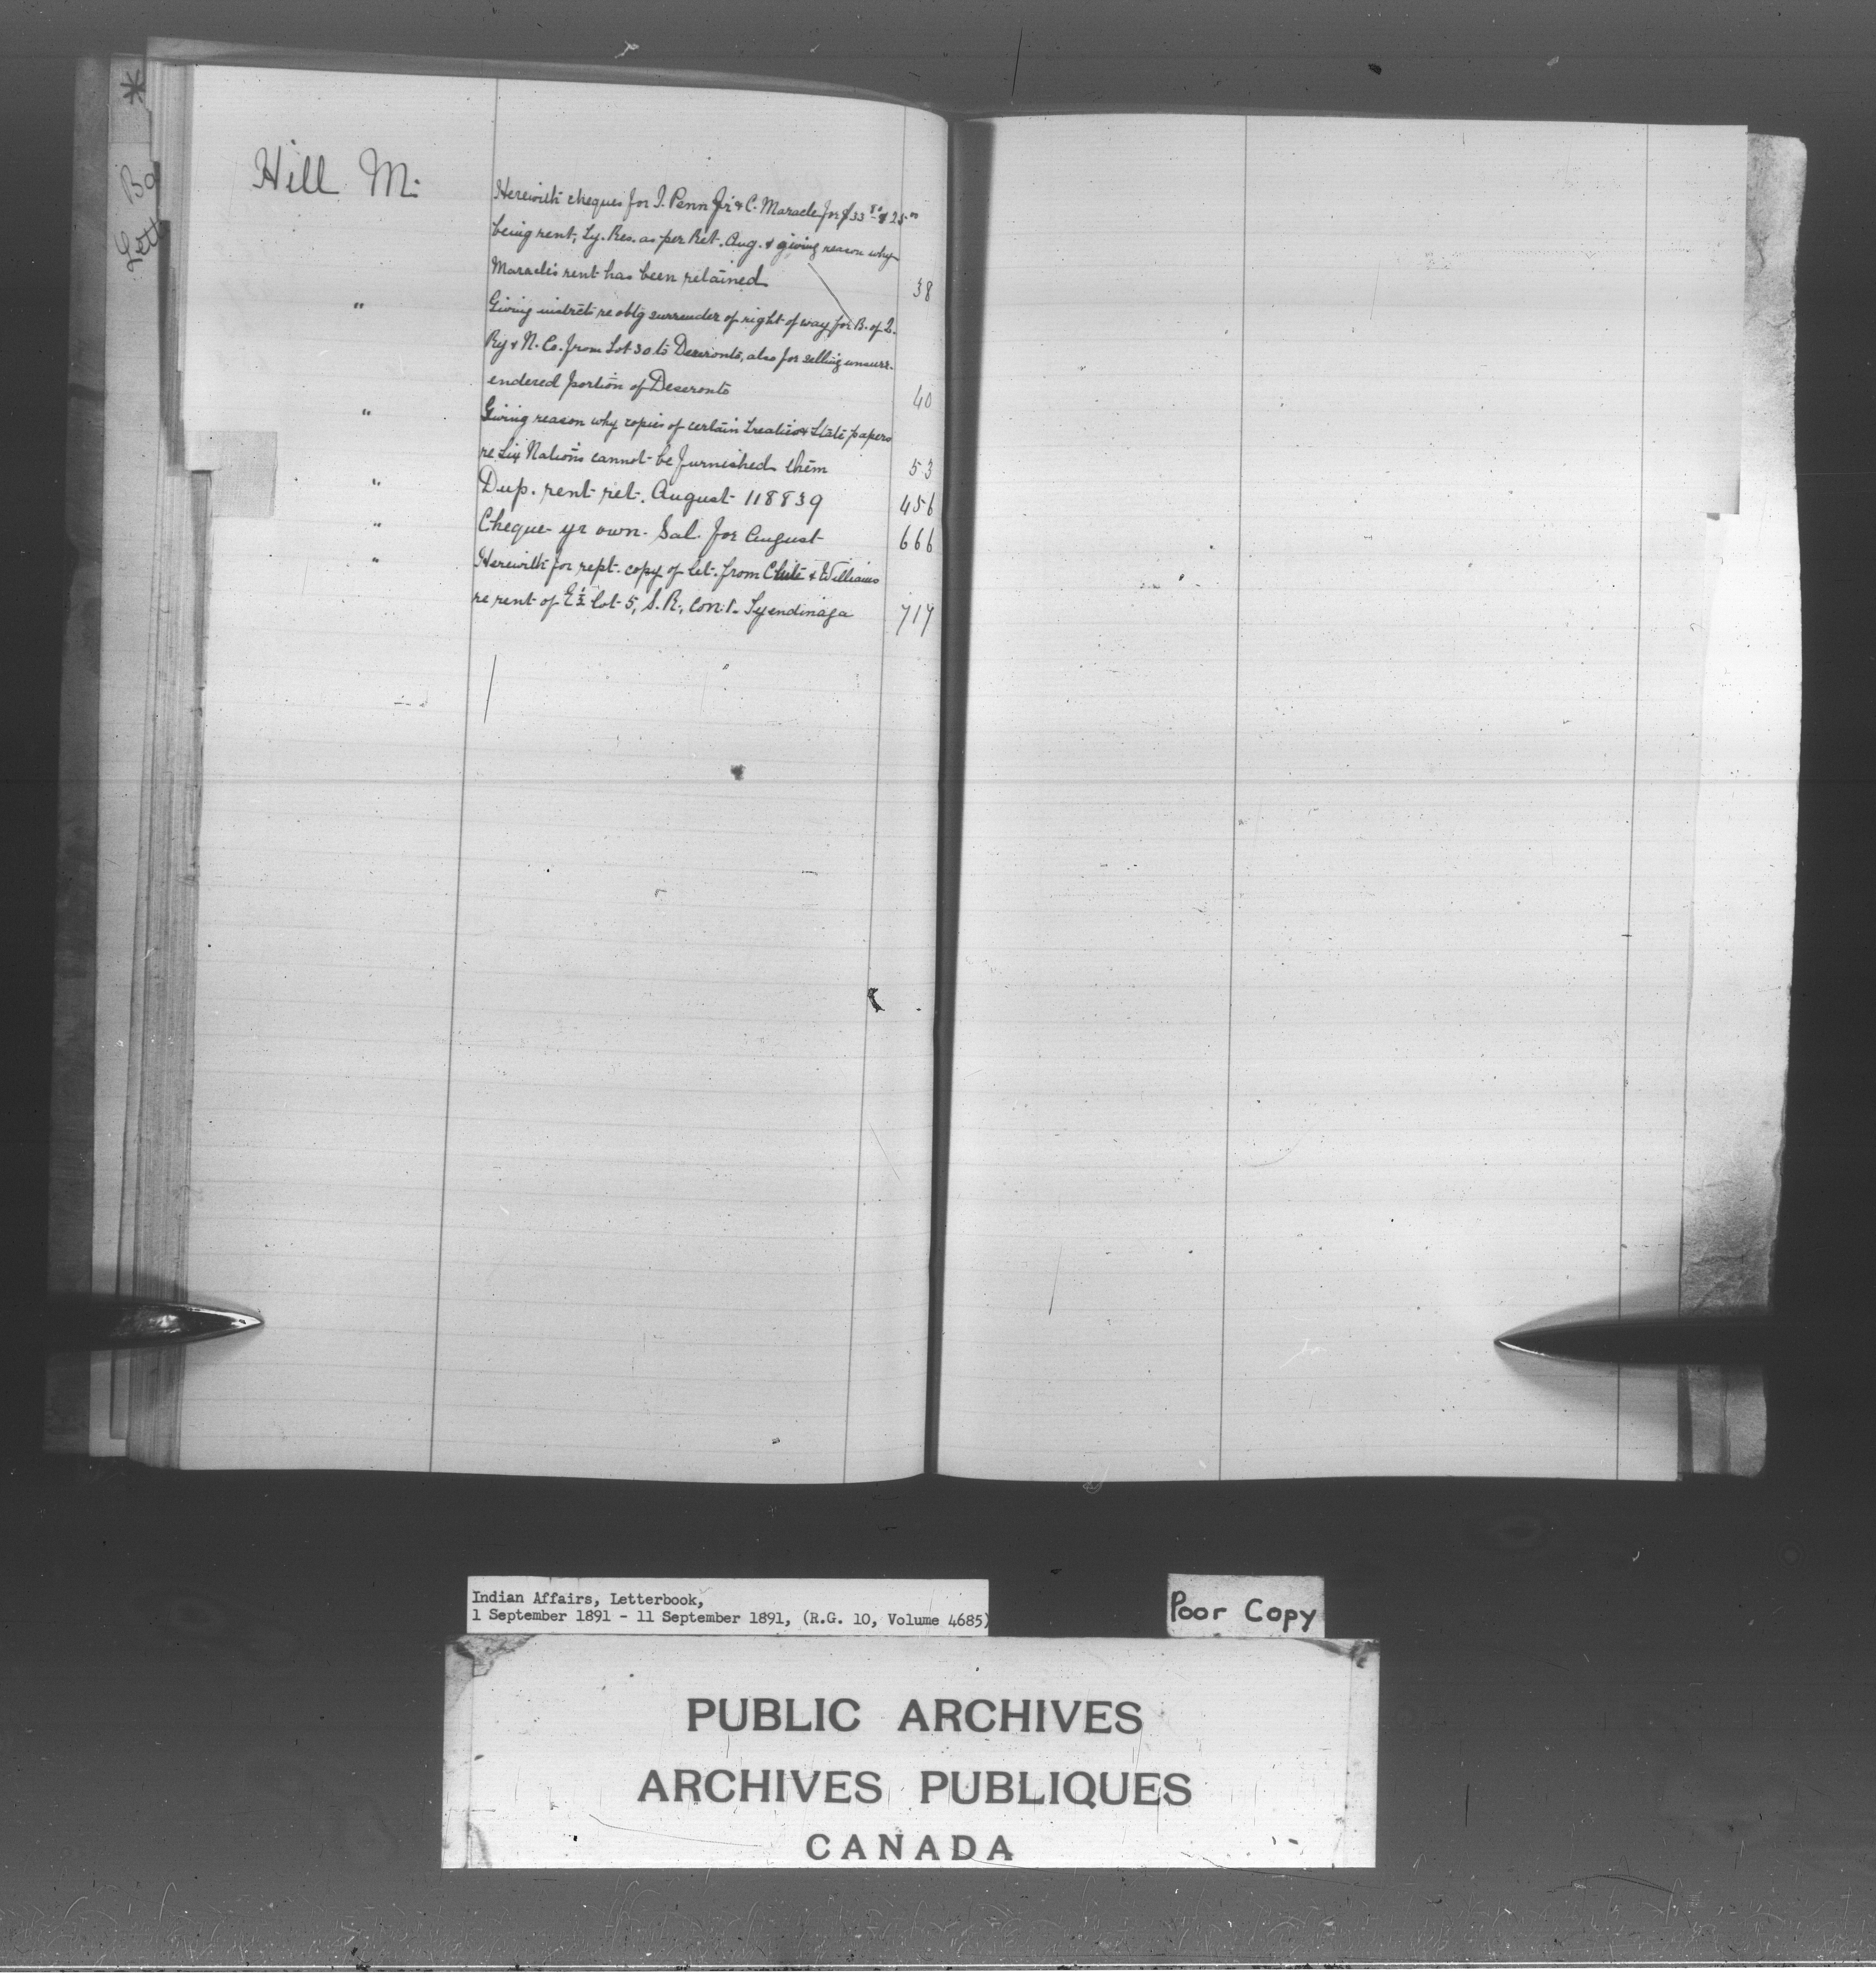 Hill M.
Herewith cheques for I. Penn Jr & C. Maracle for $33 50 & 25 00
being rent, Ty. Res. as per Ret. Aug. & giving reason why
Maracle's rent has been retained 38
" Giving instrcts re obtg surrender of right of way for B. of Q.
Ry & N. Co. from Lot 30 to Deseronto, also for selling unsurr-
endered portion of Deseronto 40
" Giving reason why copies of certain treaties & State papers
re Six Nations cannot be furnished them 53
" Dup. rent ret. August 118839 456
" Cheque yr own Sal. for August 666
" Herewith for rept. copy of let. from Clute & Williams
re rent of E ½ lot 5, S. R., Con. 1. Tyendinaga 717
Indian Affairs, Letterbook,
1 September 1891 - 11 September 1891, (R.G. 10, Volume 4685)
Poor Copy
PUBLIC ARCHIVES
ARCHIVES PUBLIQUES
CANADA